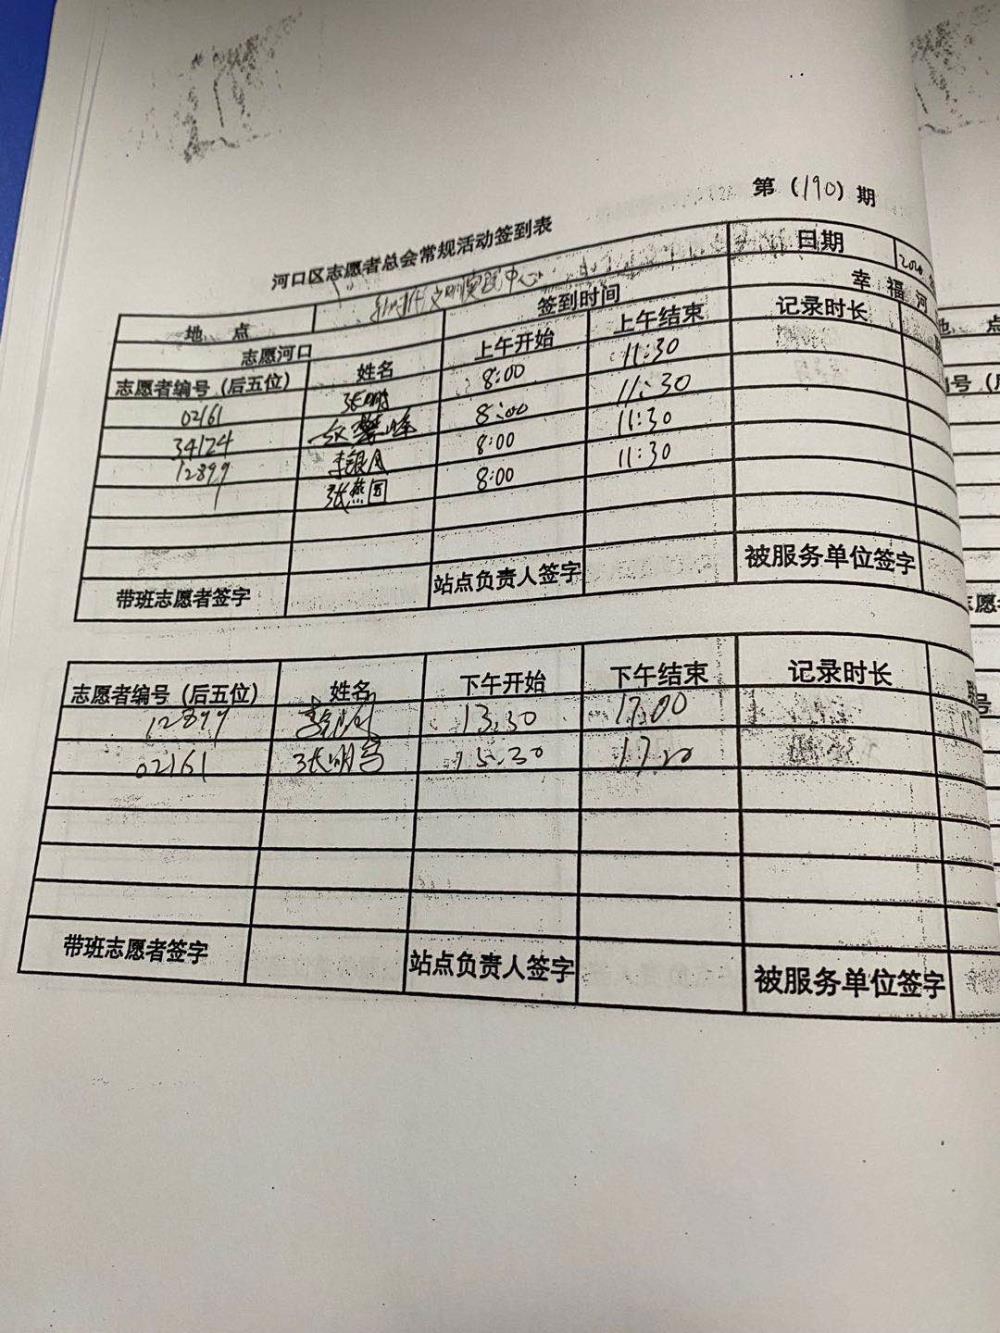 第（190）期
河口区志愿者总会常规活动签到表
地 点 新时代文明实践中心 日期
志愿河口 签到时间 幸福河
志愿者编号（后五位） 姓名 上午开始 上午结束 记录时长
02161 张明 8:00 11:30
34124 8:00 11:30
12899 李银风 8:00 11:30
张燕国 8:00 11:30
带班志愿者签字 站点负责人签字 被服务单位签字
志愿者编号（后五位） 姓名 下午开始 下午结束 记录时长
12899 13.30 17.00
02161 张明 15.30 17.20
带班志愿者签字 站点负责人签字 被服务单位签字